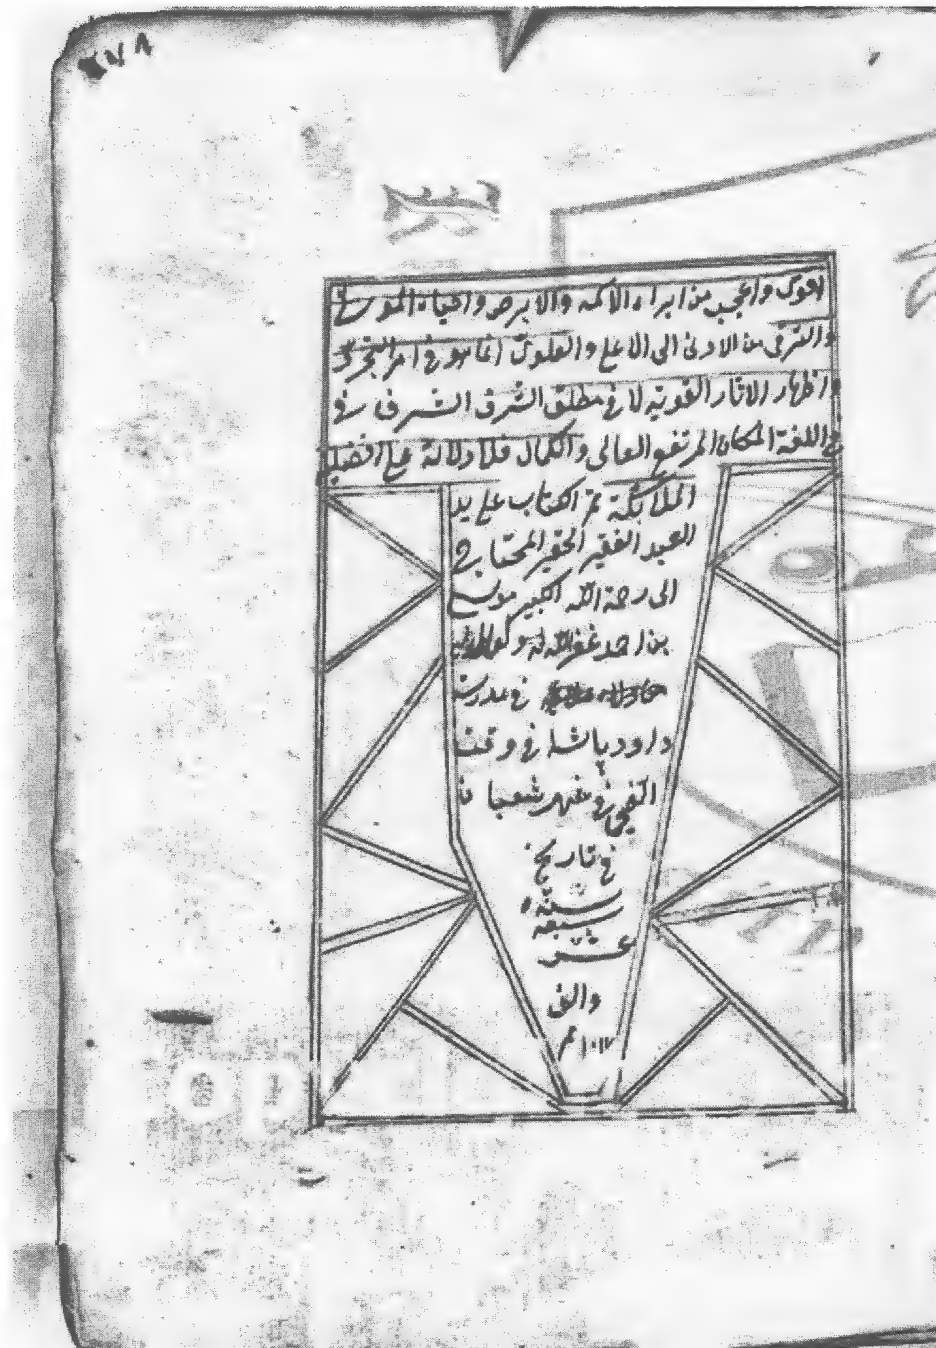 ٢٧٨
اقوى واعجب من ابراء الاكمه والابرص واحياء الموتى
والترقى من الادنى الى الاعلى والعلوى انما هو فى امر التجرد
واظهار الاثار القويه لا فى مطلق الشرف الشرف فى
فى اللغة المكان المرتفع العالى والكمال فلا دلالة على افضلية
الملائكة تم الكتاب على يد
العبد الفقير الحقير المحتاج
الى رحمة الله الكبير موسى
بن احمد غفر الله له ولوالديه
فى مدرسة
داود باشا فى وقت
الضحى فى شهر شعبان
فى تاريخ
سنة
سبعة
عشر
والف
١٠١٧ م